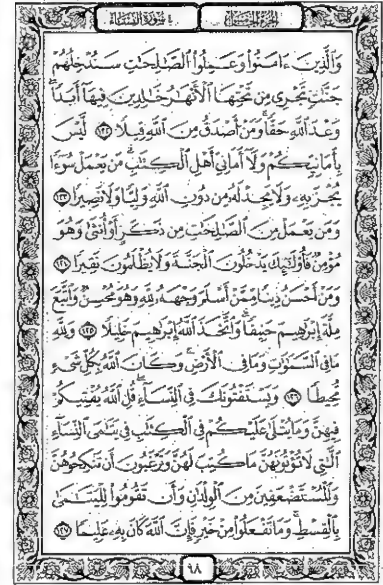 الجزء الخامس
سورة النساء
وَالَّذِينَ ءَامَنُوا۟ وَعَمِلُوا۟ الصَّٰلِحَٰتِ سَنُدْخِلُهُمْ
جَنَّٰتٍ تَجْرِى مِن تَحْتِهَا الْأَنْهَٰرُ خَٰلِدِينَ فِيهَآ أَبَدًا ۖ
وَعْدَ اللَّهِ حَقًّا ۚ وَمَنْ أَصْدَقُ مِنَ اللَّهِ قِيلًا ١٢٢ لَّيْسَ
بِأَمَانِيِّكُمْ وَلَآ أَمَانِىِّ أَهْلِ الْكِتَٰبِ ۗ مَن يَعْمَلْ سُوٓءًا
يُجْزَ بِهِۦ وَلَا يَجِدْ لَهُۥ مِن دُونِ اللَّهِ وَلِيًّا وَلَا نَصِيرًا ١٢٣
وَمَن يَعْمَلْ مِنَ الصَّٰلِحَٰتِ مِن ذَكَرٍ أَوْ أُنثَىٰ وَهُوَ
مُؤْمِنٌ فَأُو۟لَٰٓئِكَ يَدْخُلُونَ الْجَنَّةَ وَلَا يُظْلَمُونَ نَقِيرًا ١٢٤
وَمَنْ أَحْسَنُ دِينًا مِّمَّنْ أَسْلَمَ وَجْهَهُۥ لِلَّهِ وَهُوَ مُحْسِنٌ وَاتَّبَعَ
مِلَّةَ إِبْرَٰهِيمَ حَنِيفًا ۗ وَاتَّخَذَ اللَّهُ إِبْرَٰهِيمَ خَلِيلًا ١٢٥ وَلِلَّهِ
مَا فِى السَّمَٰوَٰتِ وَمَا فِى الْأَرْضِ ۚ وَكَانَ اللَّهُ بِكُلِّ شَىْءٍ
مُّحِيطًا ١٢٦ وَيَسْتَفْتُونَكَ فِى النِّسَآءِ ۖ قُلِ اللَّهُ يُفْتِيكُمْ
فِيهِنَّ وَمَا يُتْلَىٰ عَلَيْكُمْ فِى الْكِتَٰبِ فِى يَتَٰمَى النِّسَآءِ
الَّٰتِى لَا تُؤْتُونَهُنَّ مَا كُتِبَ لَهُنَّ وَتَرْغَبُونَ أَن تَنكِحُوهُنَّ
وَالْمُسْتَضْعَفِينَ مِنَ الْوِلْدَٰنِ وَأَن تَقُومُوا۟ لِلْيَتَٰمَىٰ
بِالْقِسْطِ ۚ وَمَا تَفْعَلُوا۟ مِنْ خَيْرٍ فَإِنَّ اللَّهَ كَانَ بِهِۦ عَلِيمًا ١٢٧
٩٨